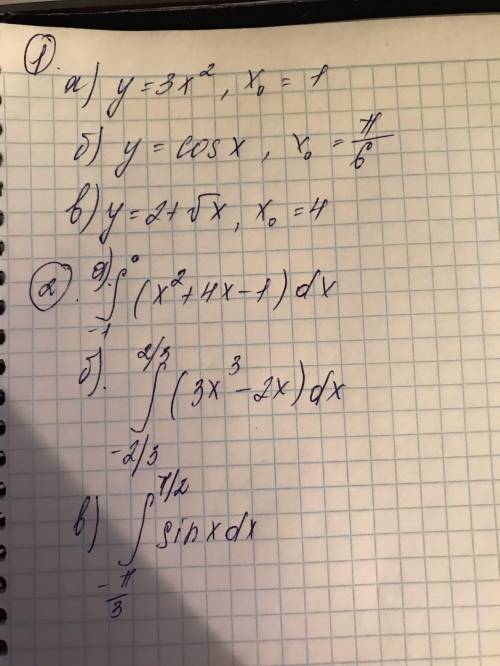 1.
а) y = 3x², x₀ = 1
б) y = cos x, x₀ = π/6
в) y = 2 + √x, x₀ = 4
2. а) ∫₋₁⁰ (x² + 4x - 1) dx
б). ∫₋₂/₃^2/3 (3x³ - 2x) dx
в) ∫₋π/3^π/2 sin x dx